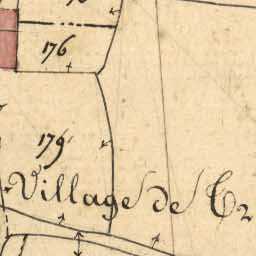 176
179
Village de